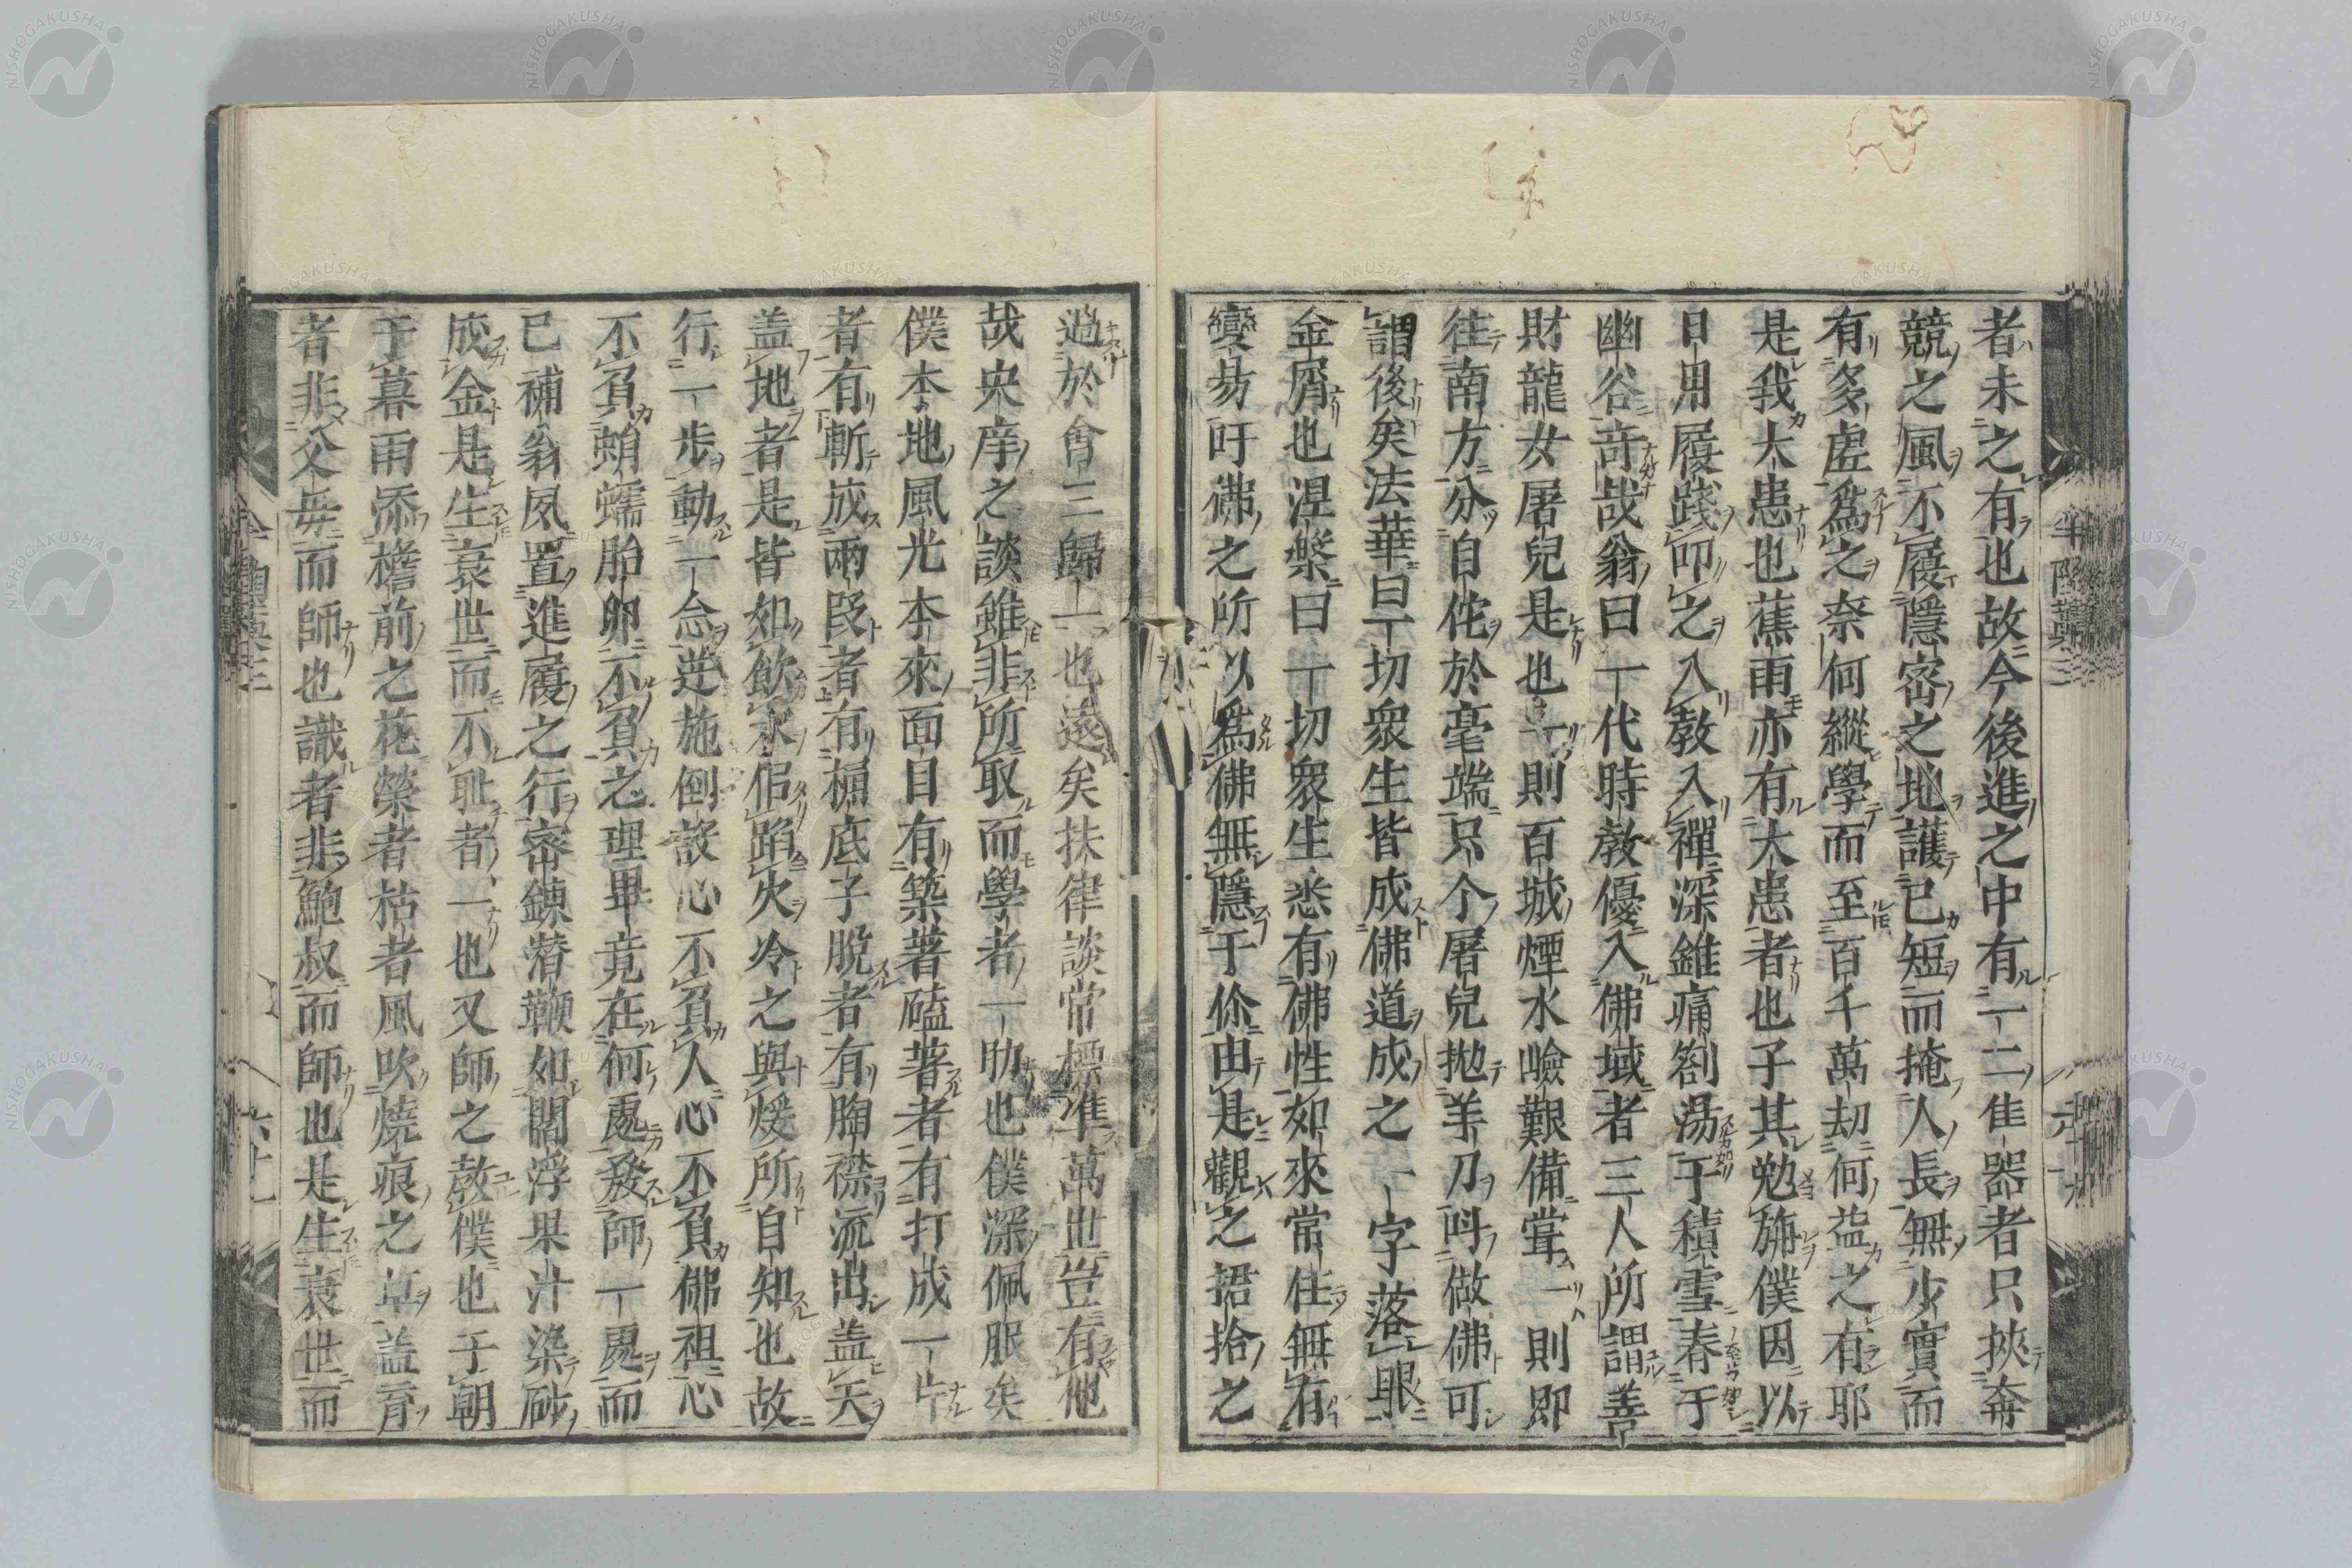 者未之有也故今後進之中有一二隹器者只挾奔
競之風不履隱密之地護已短而掩人長無少實而
有多虛爲之奈何縱學而至百千萬劫何益之有耶
是我大患也蕉雨亦有大患者也子其勉旃僕因以
日用履踐叩之入教入禪深錐痛劄荡于積雪春于
幽谷奇哉翁曰一代時教優入佛域者三人所謂善
財龍女屠兒是也一則百城煙水嶮艱備甞一則即
往南方分自佗於毫端只个屠兒拋羊刀呌做佛可
謂後矣法華曰一切衆生皆成佛道成之一字落眼
金屑也涅槃曰一切衆生悉有佛性如來常住無有
變易吁佛之所以爲佛無隱于你由是觀之捃拾之
過於會三歸一也遠矣扶律談常標準萬世豈有他
哉央庠之談雖非所取而學者一助也僕深佩服矣
僕本地風光本來面目有築著磕著者有打成一片
者有斬成兩段者有桶底子脫者有胸襟流出蓋天
盖地者是皆如飲水佀蹈火冷之與煖所自知也故
行一步動一念逆施倒設心不負人心不負佛祖心
不負蛸蠕胎卵不負之理畢竟在何處發師一處而
已補翁夙置進履之行密鍊潜鞭如閻浮果汁染砂
成金是生衰世而不耻者一也又師之教僕也于朝
于暮雨添檐前之花榮者枯者風吹燒痕之草盖育
者非父母而師也識者非鮑叔而師也是生衰世而
半陶藁三
六十一